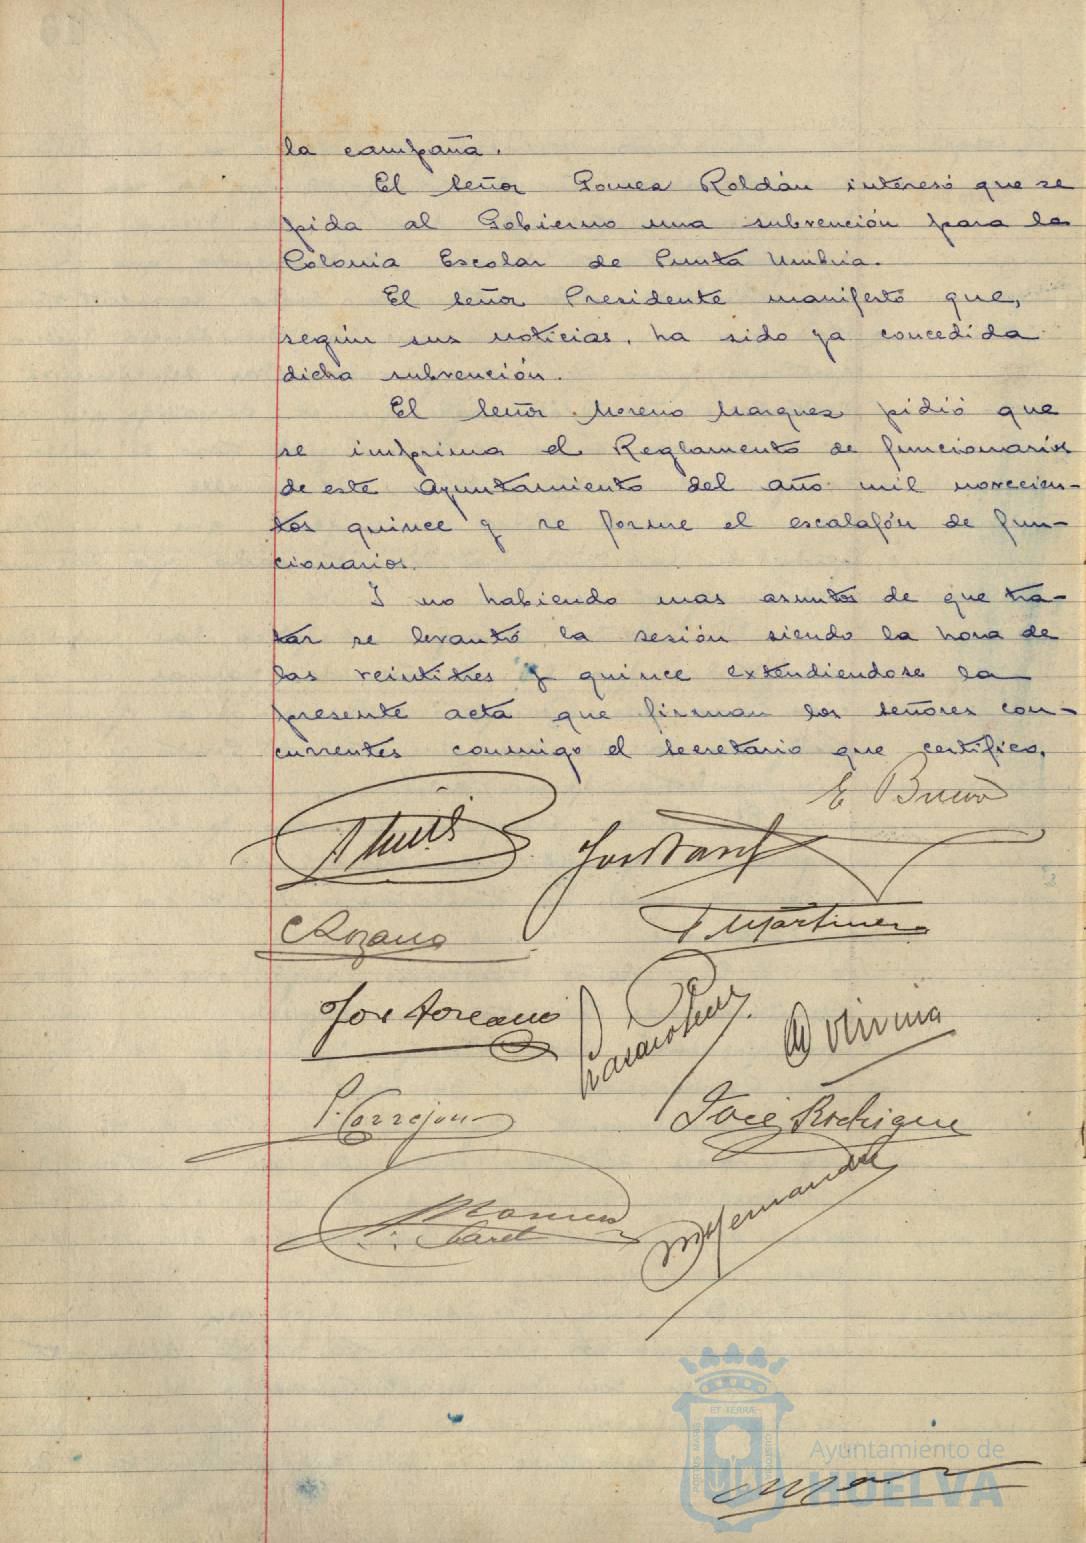 la campaña.
El señor Gomez Roldán interesó que se
pida al Gobierno una subvención para la
Colonia Escolar de Punta Umbria.
El señor Presidente manifestó que,
según sus noticias, ha sido ya concedida
dicha subvención.
El señor Moreno Marquez pidió que
se imprima el Reglamento de funcionarios
de este Ayuntamiento del año mil novecien-
tos quince y se forme el escalafón de fun-
cionarios.
Y no habiendo mas asuntos de que tra-
tar se levantó la sesión siendo la hora de
las veintitres y quince extendiendose la
presente acta que firman los señores con-
currentes conmigo el Secretario que certifico.
E
J Martinez
José
P. Correjon
José Rodrigue
Hernandez
ET TERRÆ
PORTUS MARIS
CUSTODIA
Ayuntamiento de
HUELVA